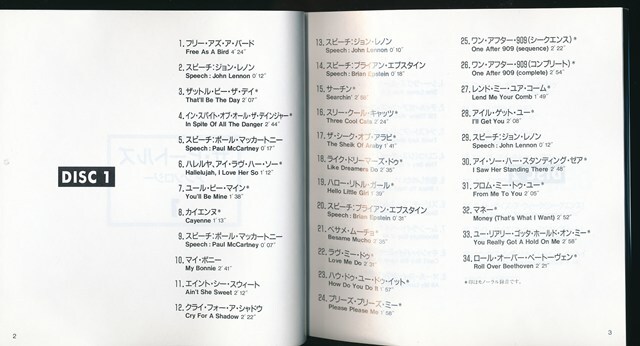 DISC 1
1. フリー・アズ・ア・バード
Free As A Bird 4′24″
2. スピーチ:ジョン・レノン
Speech : John Lennon 0′12″
3. ザットル・ビー・ザ・デイ*
That'll Be The Day 2′07″
4. イン・スパイト・オブ・オール・ザ・デインジャー*
In Spite Of All The Danger 2′44″
5. スピーチ:ポール・マッカートニー
Speech : Paul McCartney 0′17″
6. ハレルヤ、アイ・ラヴ・ハー・ソー*
Hallelujah, I Love Her So 1′12″
7. ユール・ビー・マイン*
You'll Be Mine 1′38″
8. カイエンヌ*
Cayenne 1′13″
9. スピーチ:ポール・マッカートニー
Speech : Paul McCartney 0′07″
10. マイ・ボニー
My Bonnie 2′41″
11. エイント・シー・スウィート
Ain't She Sweet 2′12″
12. クライ・フォー・ア・シャドウ
Cry For A Shadow 2′22″
2
13. スピーチ:ジョン・レノン
Speech : John Lennon 0′10″
14. スピーチ:ブライアン・エプスタイン
Speech : Brian Epstein 0′18″
15. サーチン*
Searchin'
16. スリー・クール・キャッツ*
Three Cool Cats 2′24″
17. ザ・シーク・オブ・アラビィ*
The Sheik Of Araby 1′41″
18. ライク・ドリーマーズ・ドゥ*
Like Dreamers Do 2′35″
19. ハロー・リトル・ガール*
Hello Little Girl 1′39″
20. スピーチ:ブライアン・エプスタイン
Speech : Brian Epstein 0′31″
21. ベサメ・ムーチョ*
Besame Mucho 2′35″
22. ラヴ・ミー・ドゥ*
Love Me Do 2′31″
23. ハウ・ドゥ・ユー・ドゥ・イット*
How Do You Do It 1′57″
24. プリーズ・プリーズ・ミー*
Please Please Me 1′58″
25. ワン・アフター・909(シークエンス)*
One After 909 (sequence) 2′22″
26. ワン・アフター・909(コンプリート)*
One After 909 (complete) 2′54″
27. レンド・ミー・ユア・コーム*
Lend Me Your Comb 1′49″
28. アイル・ゲット・ユー*
I'll Get You 2′08″
29. スピーチ:ジョン・レノン
Speech : John Lennon 0′12″
30. アイ・ソー・ハー・スタンディング・ゼア*
I Saw Her Standing There 2′48″
31. フロム・ミー・トゥ・ユー*
From Me To You 2′05″
32. マネー*
Money (That's What I Want) 2′52″
33. ユー・リアリー・ゴッタ・ホールド・オン・ミー*
You Really Got A Hold On Me 2′58″
34. ロール・オーバー・ベートーヴェン*
Roll Over Beethoven 2′21″
*印はモノーラル録音です。
3